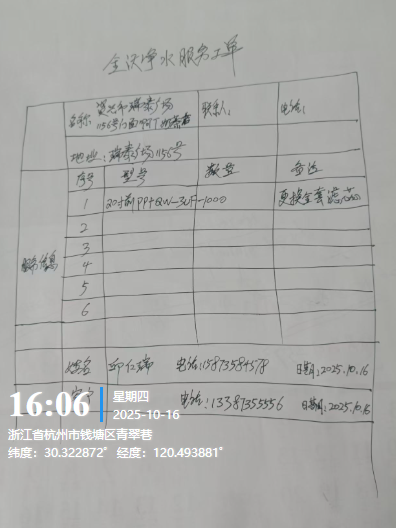 净水服务工单
名称:
联系人:
电话:
地址:瑞泰广场1156号
序号 型号 数量 备注
1 20寸前PP+QW-3UF-1000 更换全套滤芯
2
3
服务信息
4
5
6
姓名 邱仁瑞 电话:15873584578 日期:2025.10.16
电话:13387355556 日期:2025.10.16
16:06
星期四
2025-10-16
浙江省杭州市钱塘区青翠巷
纬度:30.322872° 经度:120.493881°